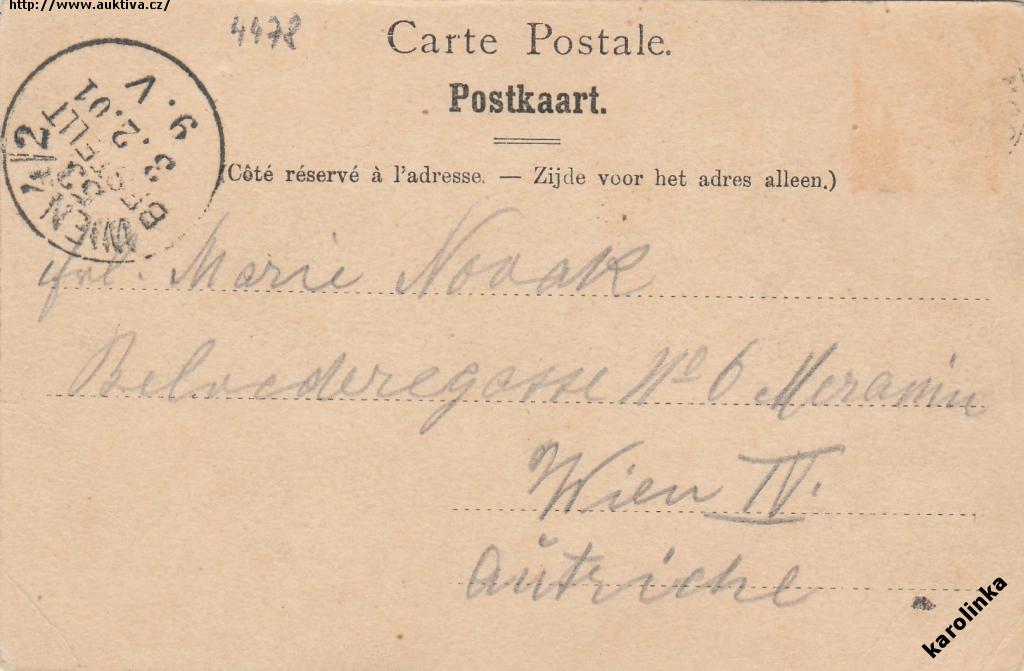 http://www.auktiva.cz/
4478
Carte Postale.
Postkaart.
(Côté réservé à l'adresse. — Zijde voor het adres alleen.)
WIEN 4/2
53
BESTELLT
3.2.01
9.V
Frl. Marie Novak
Belvederegasse No 6
Wien IV.
Autriche
karolinka